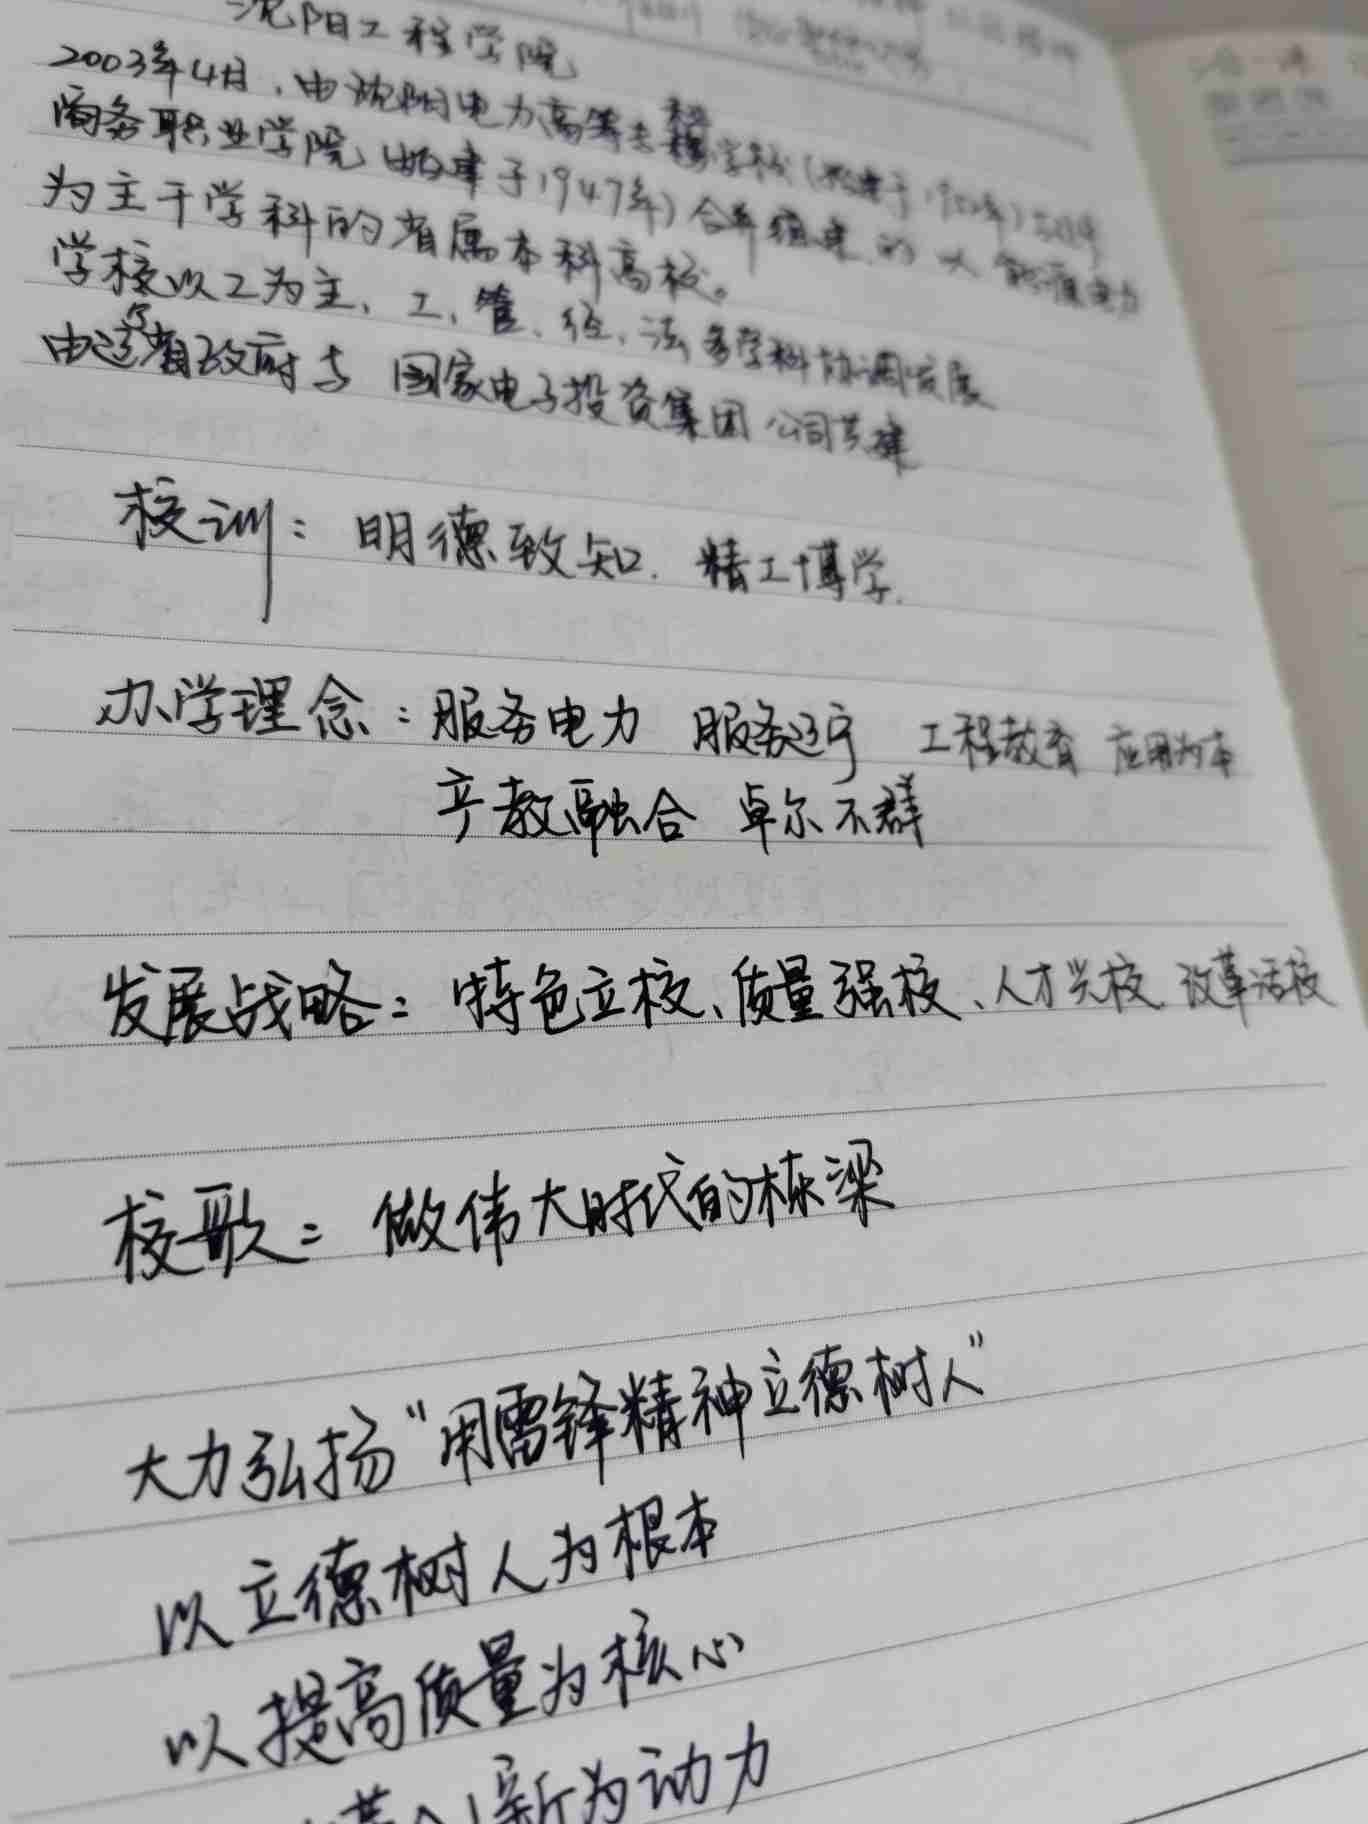 沈阳工程学院
2003年4月,由沈阳电力高等专科学校(始建于1952年)与辽宁
商务职业学院(始建于1947年)合并组建的以能源电力
为主干学科的省属本科高校。
学校以工为主,工、管、经、法多学科协调发展
由辽宁省政府与国家电子投资集团公司共建
校训:明德致知.精工博学.
办学理念:服务电力 服务辽宁 工程教育 应用为本
产教融合 卓尔不群
发展战略:特色立校、质量强校、人才兴校、改革活校
校歌:做伟大时代的栋梁
大力弘扬“用雷锋精神立德树人”
以立德树人为根本
以提高质量为核心
新为动力